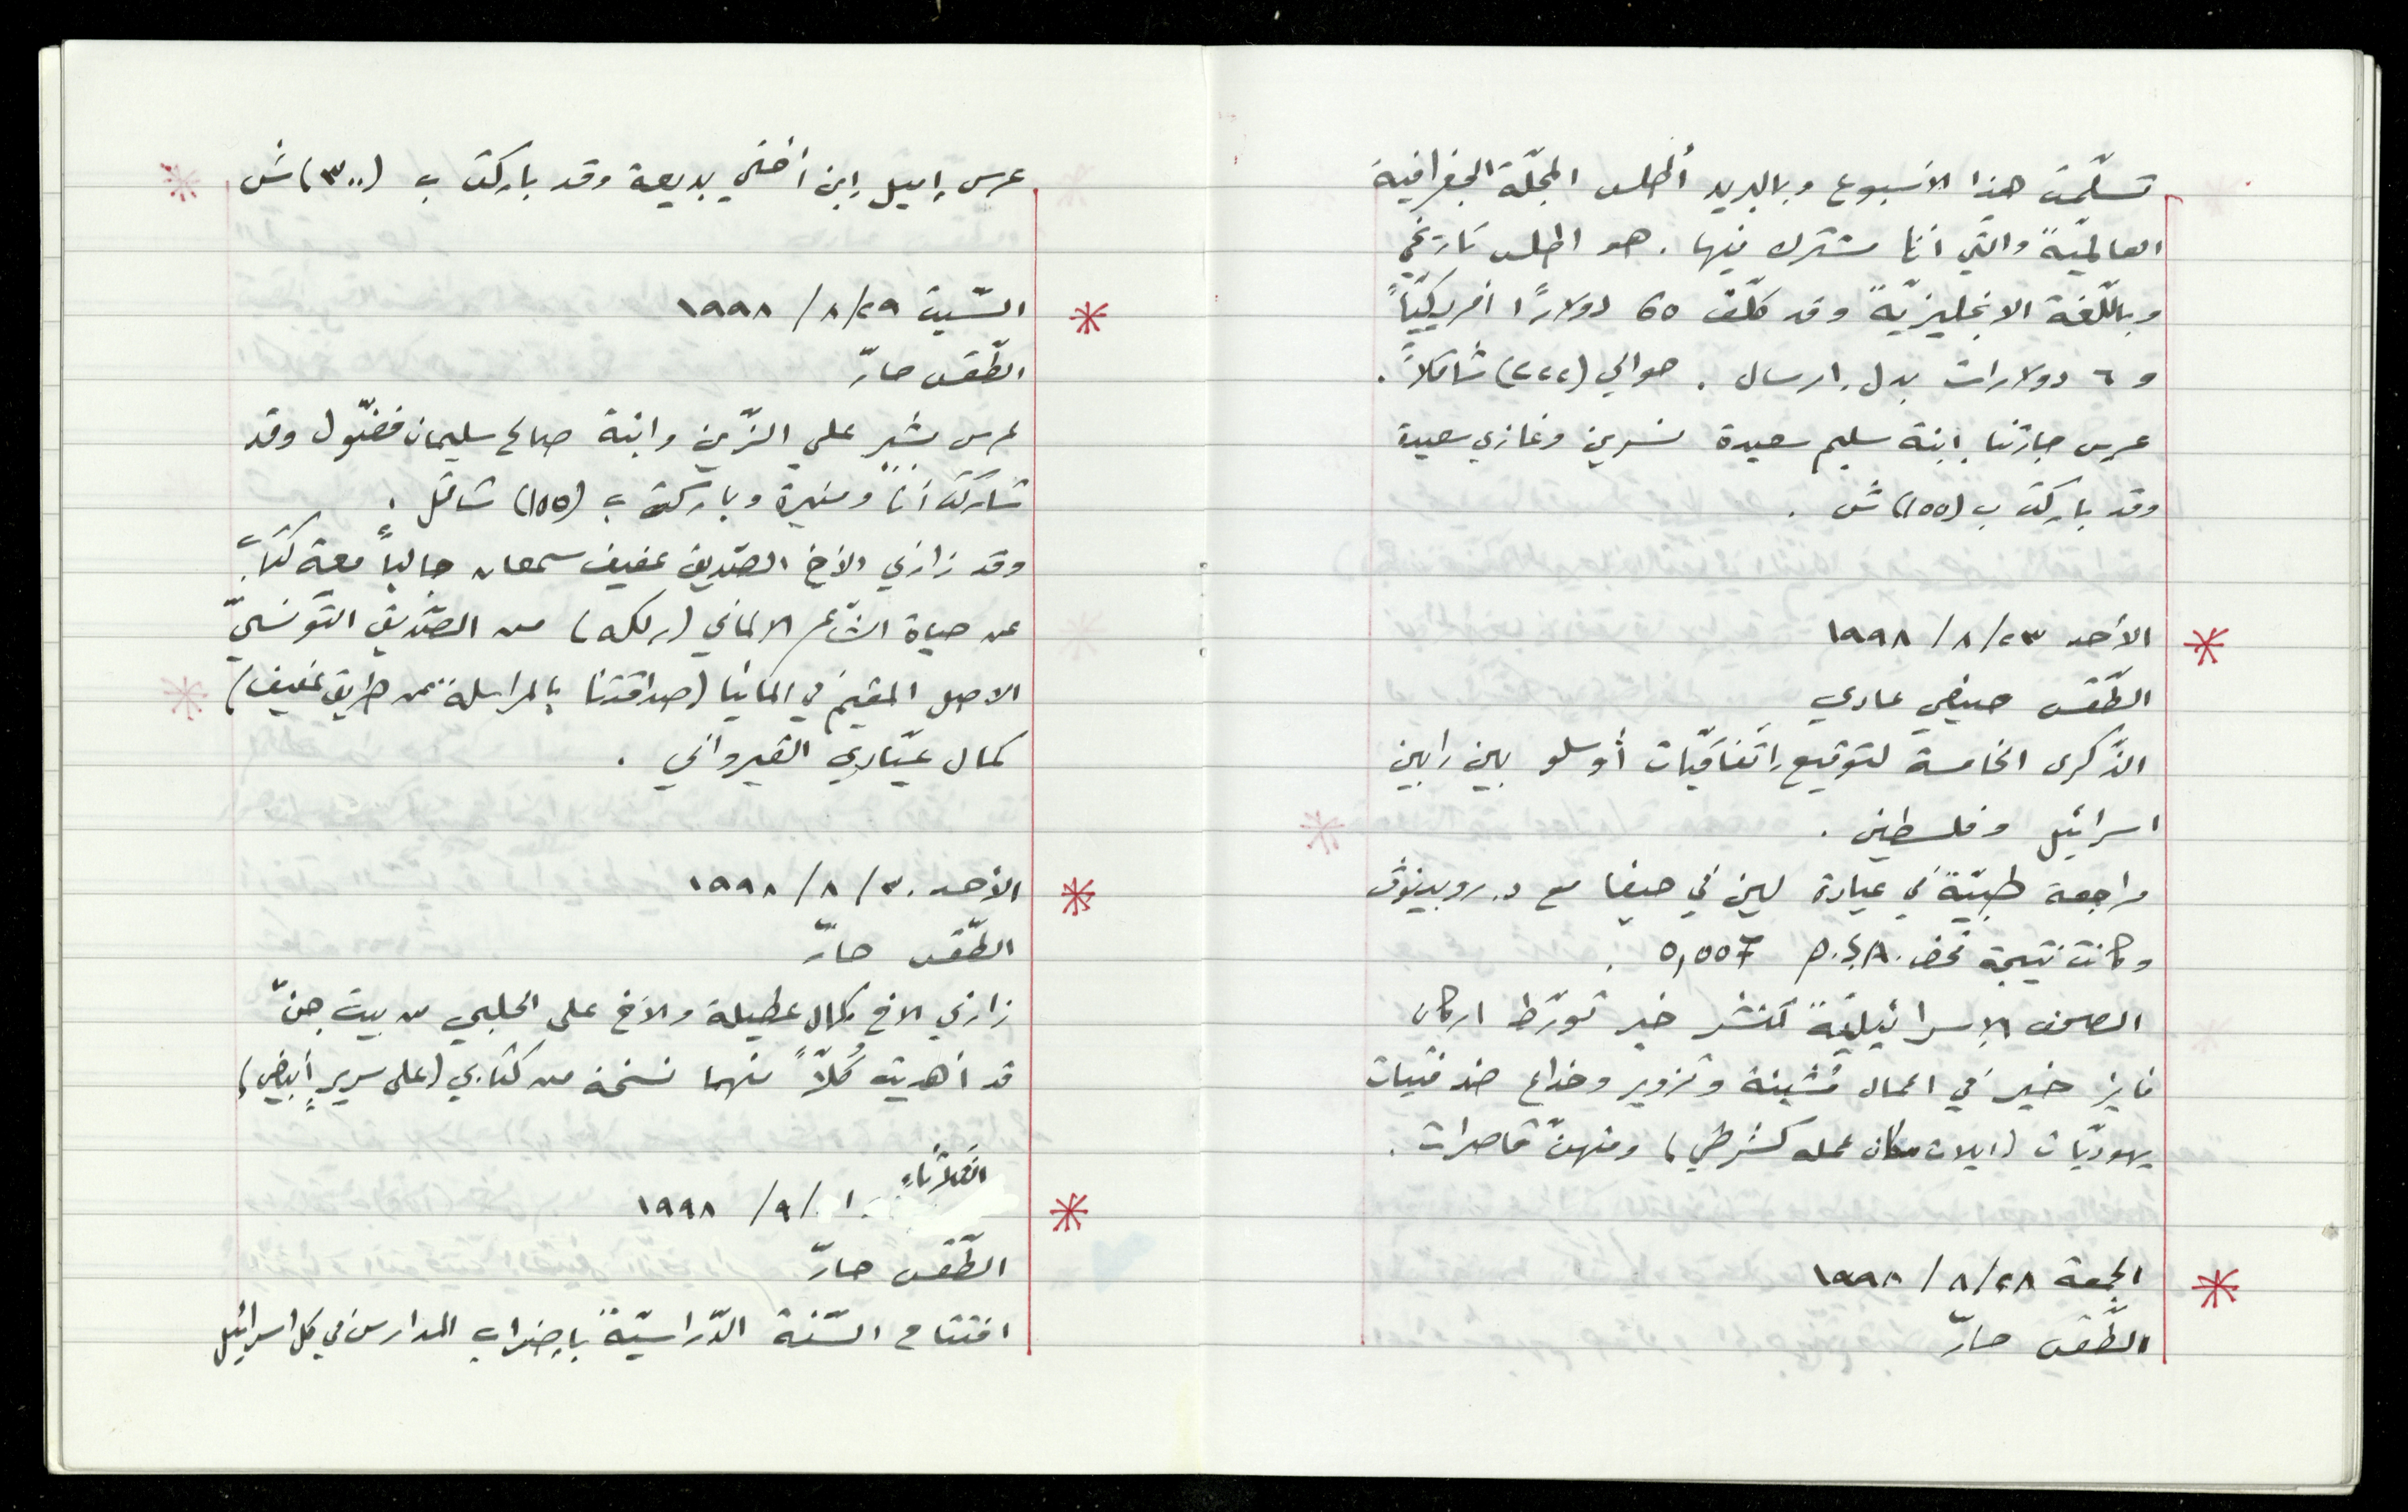 تسلّمت هذا الاسبوع وبالبريد أطلس المجلّة الجغرافية
العالميّة والتي انا مشترك فيها. هو اطلس تاريخي
وباللّغة الانجليزيّة وقد كلّف 65 دولارًا امريكيّاً
و ٦ دولارات بدل إرسال. حوالي (٢٢٢) شاقلاً.
عرس جارتنا إبنة سليم سعيدة نسرين وغازي سعيدة
وقد باركت ب (١٥٥) ش.
الأحد ٢٣/٨/١٩٩٨
الطّقس صيفي عادي
الذّكرى الخامسة لتوقيع إتّفاقيّات أوسلو بين رابين
اسرائيل وفلسطين.
مراجعة طبيّة في عيادة لين في حيفا مع د. روبينوف
وكانت نتيجة فحص P.S.A.
الصحف الإسرائيليّة تنشر خبر تورّط اركان
فايز خير في اعمال مُشينة وتزوير وخداع ضد فتيات
يهوديّات (ايلات مكان عمله كشرطي) ومنهنّ قاصرات.
الجمعة ٢٨/٨/١٩٩٨
الطّقس حارّ
عرس إميل إبن أختي بديعة وقد باركت ب (٣٠٠) ش
السّبت ٢٩/٨/١٩٩٨
الطّقس حارّ
عرس بشير علي الزّين وابنة صالح سليمان فضّول وقد
شاركت أنا ومنيرة وباركت ب (١٥٥) شاقل.
وقد زارني الأخ الصّديق عفيف سمعان جالباً معه كتاب
عن حياة الشّاعر الالماني (ريلكه) من الصّديق التّونسيّ
الاصل المقيم في المانيا (صداقتنا بالمراسلة عن طريق عفيف)
كمال عيّادي القيرواني.
الأحد ٣٠/٨/١٩٩٨
الطّقس حارّ
زارني الاخ كمال عطيلة والأخ علي الحلبي من بيت جنّ
قد أهديت كُلّاً منهما نسخة من كتابي (على سريرٍ أبيض)
الثلاثاء
١/٩/١٩٩٨
الطّقس حارّ
افتتاح السّنة الدّراسيّة بإضراب المدارس في كل اسرائيل